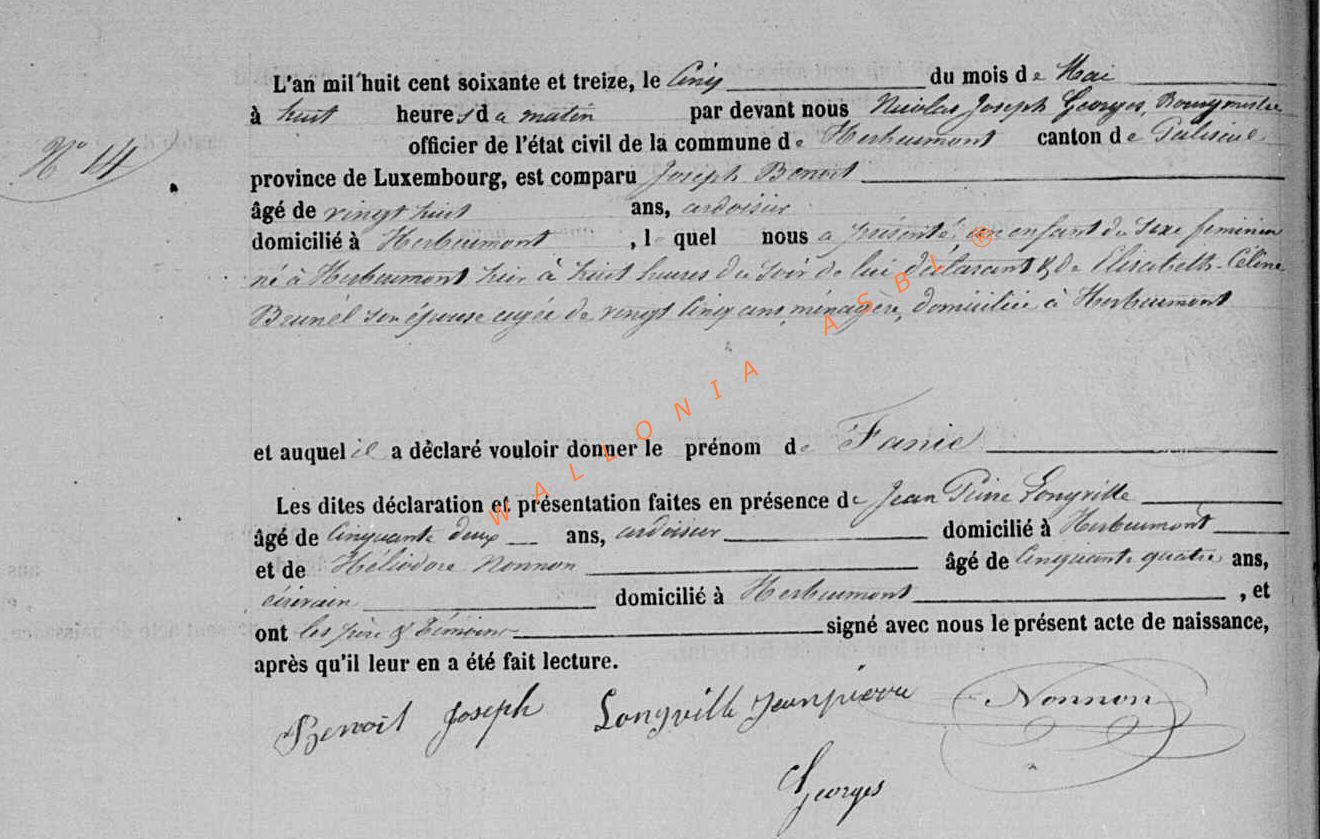 N° 14
L'an mil huit cent soixante et treize, le Cinq du mois de Mai
à huit heures da matin par devant nous Nicolas Joseph Georges, Bourgmestre
officier de l'état civil de la commune de Herbeumont canton de Paliseul
province de Luxembourg, est comparu Joseph Benoit
âgé de vingt huit ans, ardoisier
domicilié à Herbeumont , lequel nous a présenté un enfant du sexe féminin
né à Herbeumont hier à huit heures du soir de lui déclarant & de Elisabeth-Céline
Brunel son épouse agée de vingt cinq ans, ménagère, domiciliée à Herbeumont
et auquel il a dèclaré vouloir donner le prénom de Fanie
Les dites déclaration et présentation faites en présence de Jean Pierre Longville
âgé de Cinquante deux ans, ardoisier domicilié à Herbeumont
et de Héliodore Nonnon âgé de Cinquante quatre ans,
écrivain domicilié à Herbeumont , et
ont les père & témoins signé avec nous le présent acte de naissance,
après qu'il leur en a été fait lecture.
Benoit Joseph Longville Jeanpierre Nonnon
Georges
WALLONIA ASBL ®